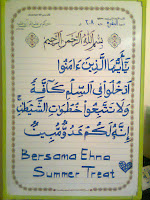 ٢٠٨
بِسْمِ اللَّهِ الرَّحْمَٰنِ الرَّحِيمِ
يَا أَيُّهَا الَّذِينَ آمَنُوا
ادْخُلُوا فِي السِّلْمِ كَافَّةً
وَلَا تَتَّبِعُوا خُطُوَاتِ الشَّيْطَانِ
إِنَّهُ لَكُمْ عَدُوٌّ مُّبِينٌ
Bersama Ehna
Summer Treat